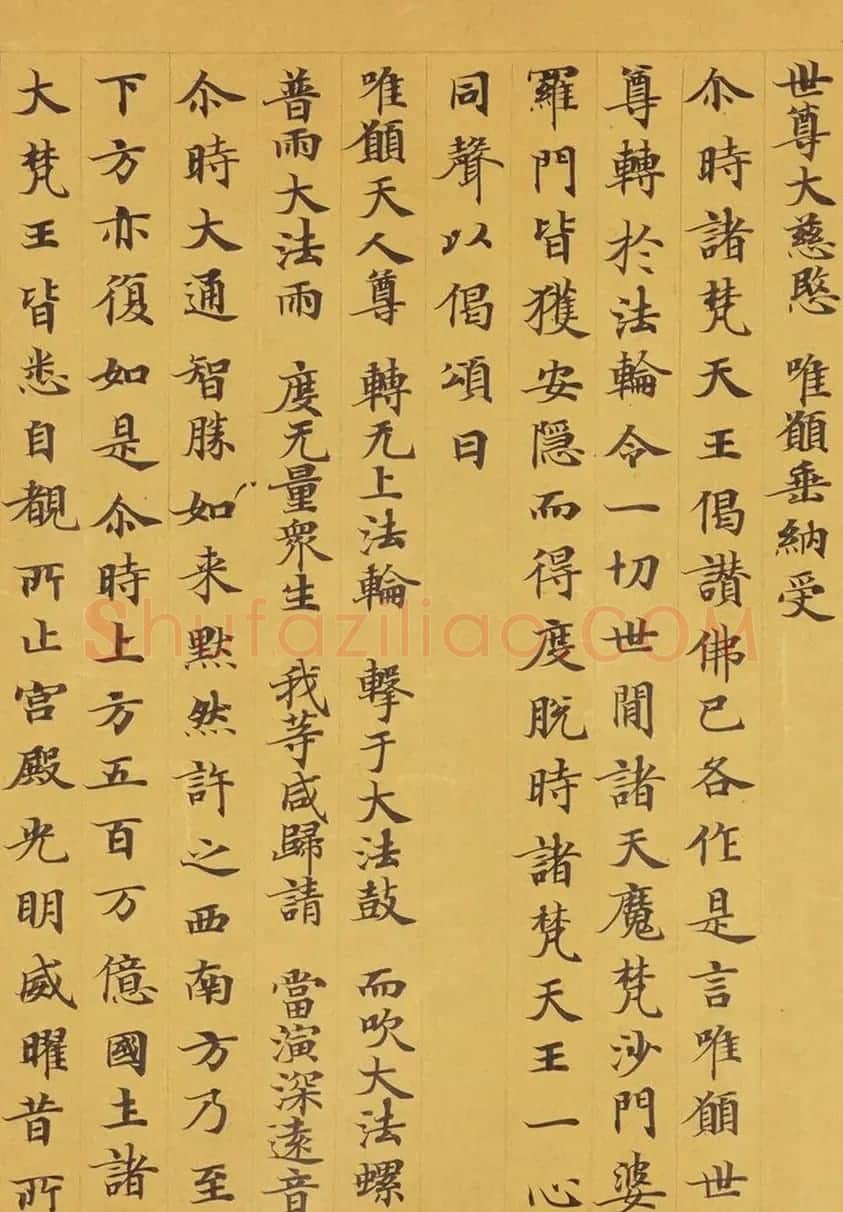 世尊大慈愍　唯願垂納受
尒時諸梵天王偈讚佛已各作是言唯願世
尊轉於法輪令一切世間諸天魔梵沙門婆
羅門皆獲安隱而得度脫時諸梵天王一心
同聲以偈頌曰
唯願天人尊　轉无上法輪　擊于大法鼓　而吹大法螺
普雨大法雨　度无量眾生　我等咸歸請　當演深遠音
尒時大通智勝如来默然許之西南方乃至
下方亦復如是尒時上方五百万億國土諸
大梵王皆悉自覩所止宮殿光明威曜昔所
Shufaziliao.COM